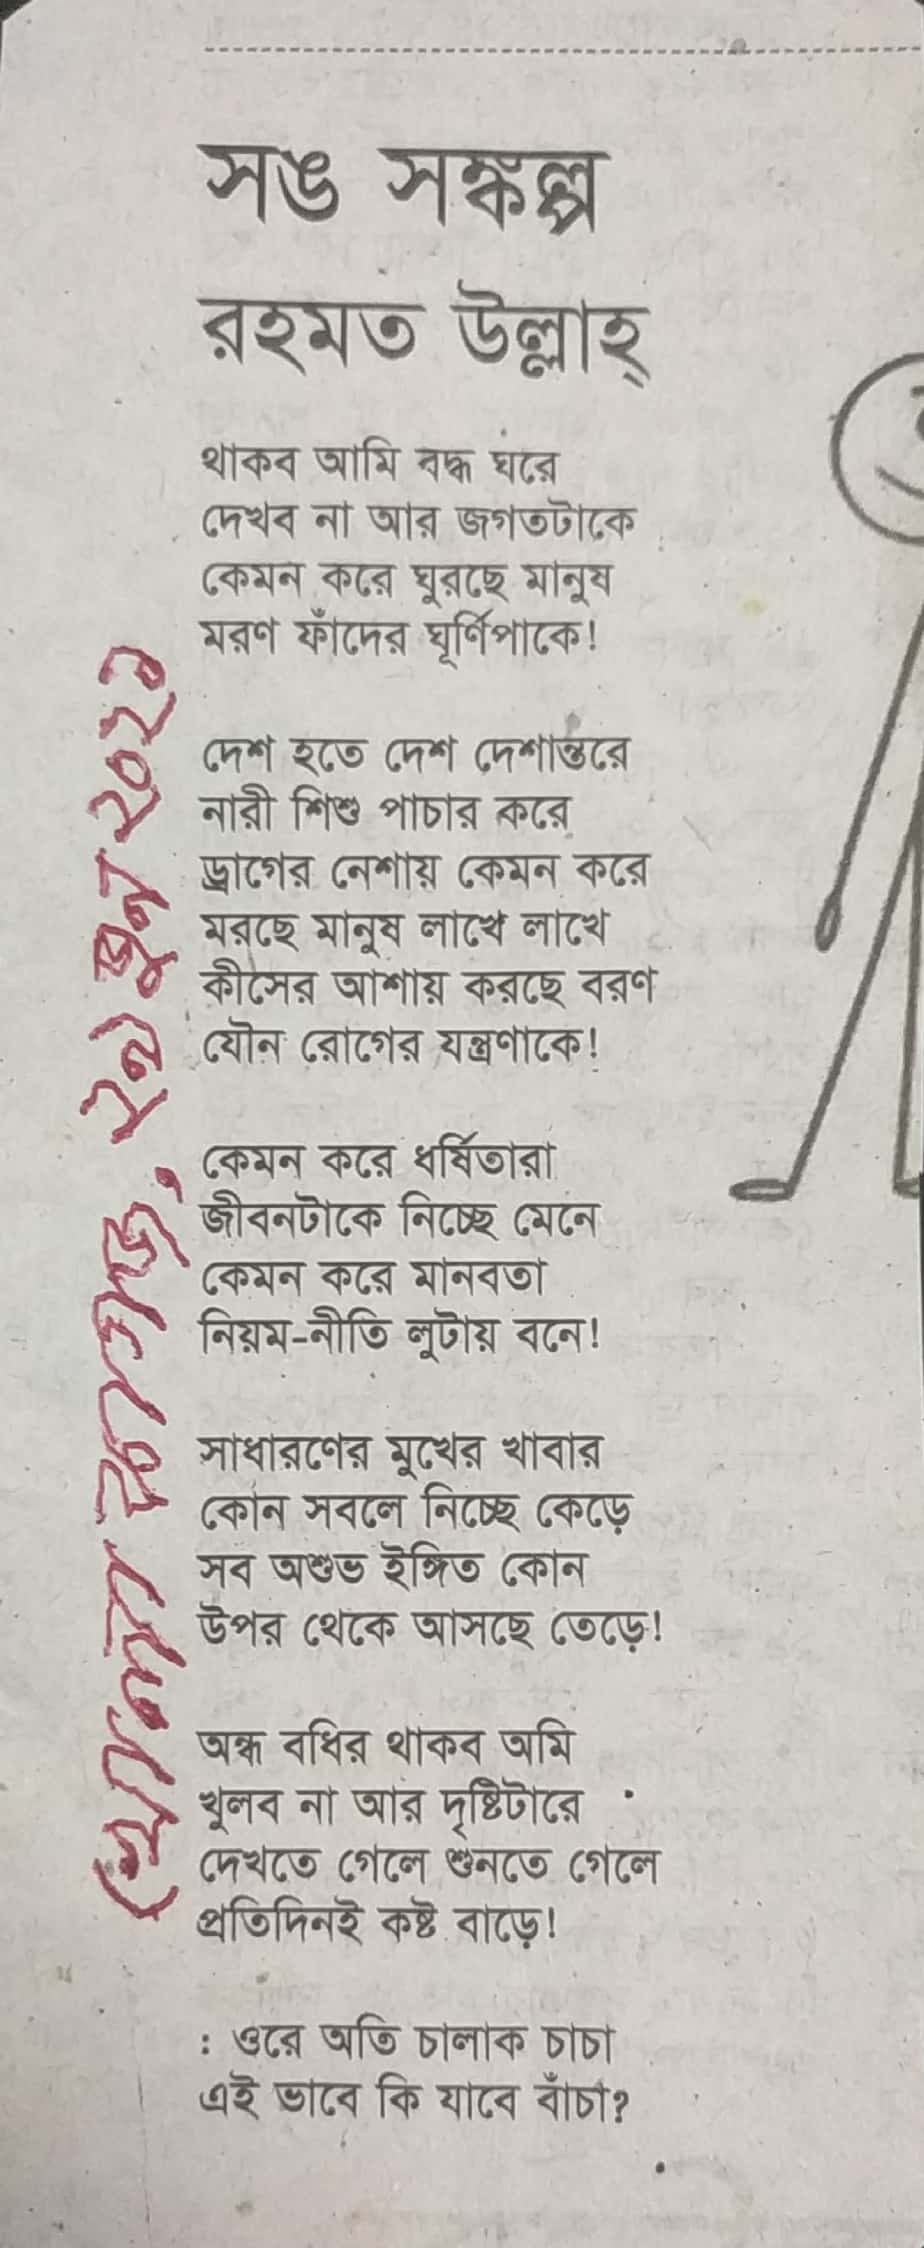 সঙ সঙ্কল্প
রহমত উল্লাহ্
থাকব আমি বদ্ধ ঘরে
দেখব না আর জগতটাকে
কেমন করে ঘুরছে মানুষ
মরণ ফাঁদের ঘূর্ণিপাকে!
দেশ হতে দেশ দেশান্তরে
নারী শিশু পাচার করে
ড্রাগের নেশায় কেমন করে
মরছে মানুষ লাখে লাখে
কীসের আশায় করছে বরণ
যৌন রোগের যন্ত্রণাকে!
কেমন করে ধর্ষিতারা
জীবনটাকে নিচ্ছে মেনে
কেমন করে মানবতা
নিয়ম-নীতি লুটায় বনে!
সাধারণের মুখের খাবার
কোন সবলে নিচ্ছে কেড়ে
সব অশুভ ইঙ্গিত কোন
উপর থেকে আসছে তেড়ে!
অন্ধ বধির থাকব অমি
খুলব না আর দৃষ্টিটারে
দেখতে গেলে শুনতে গেলে
প্রতিদিনই কষ্ট বাড়ে!
: ওরে অতি চালাক চাচা
এই ভাবে কি যাবে বাঁচা?
খোলা কাগজ, ২৯ জুন ২০২১